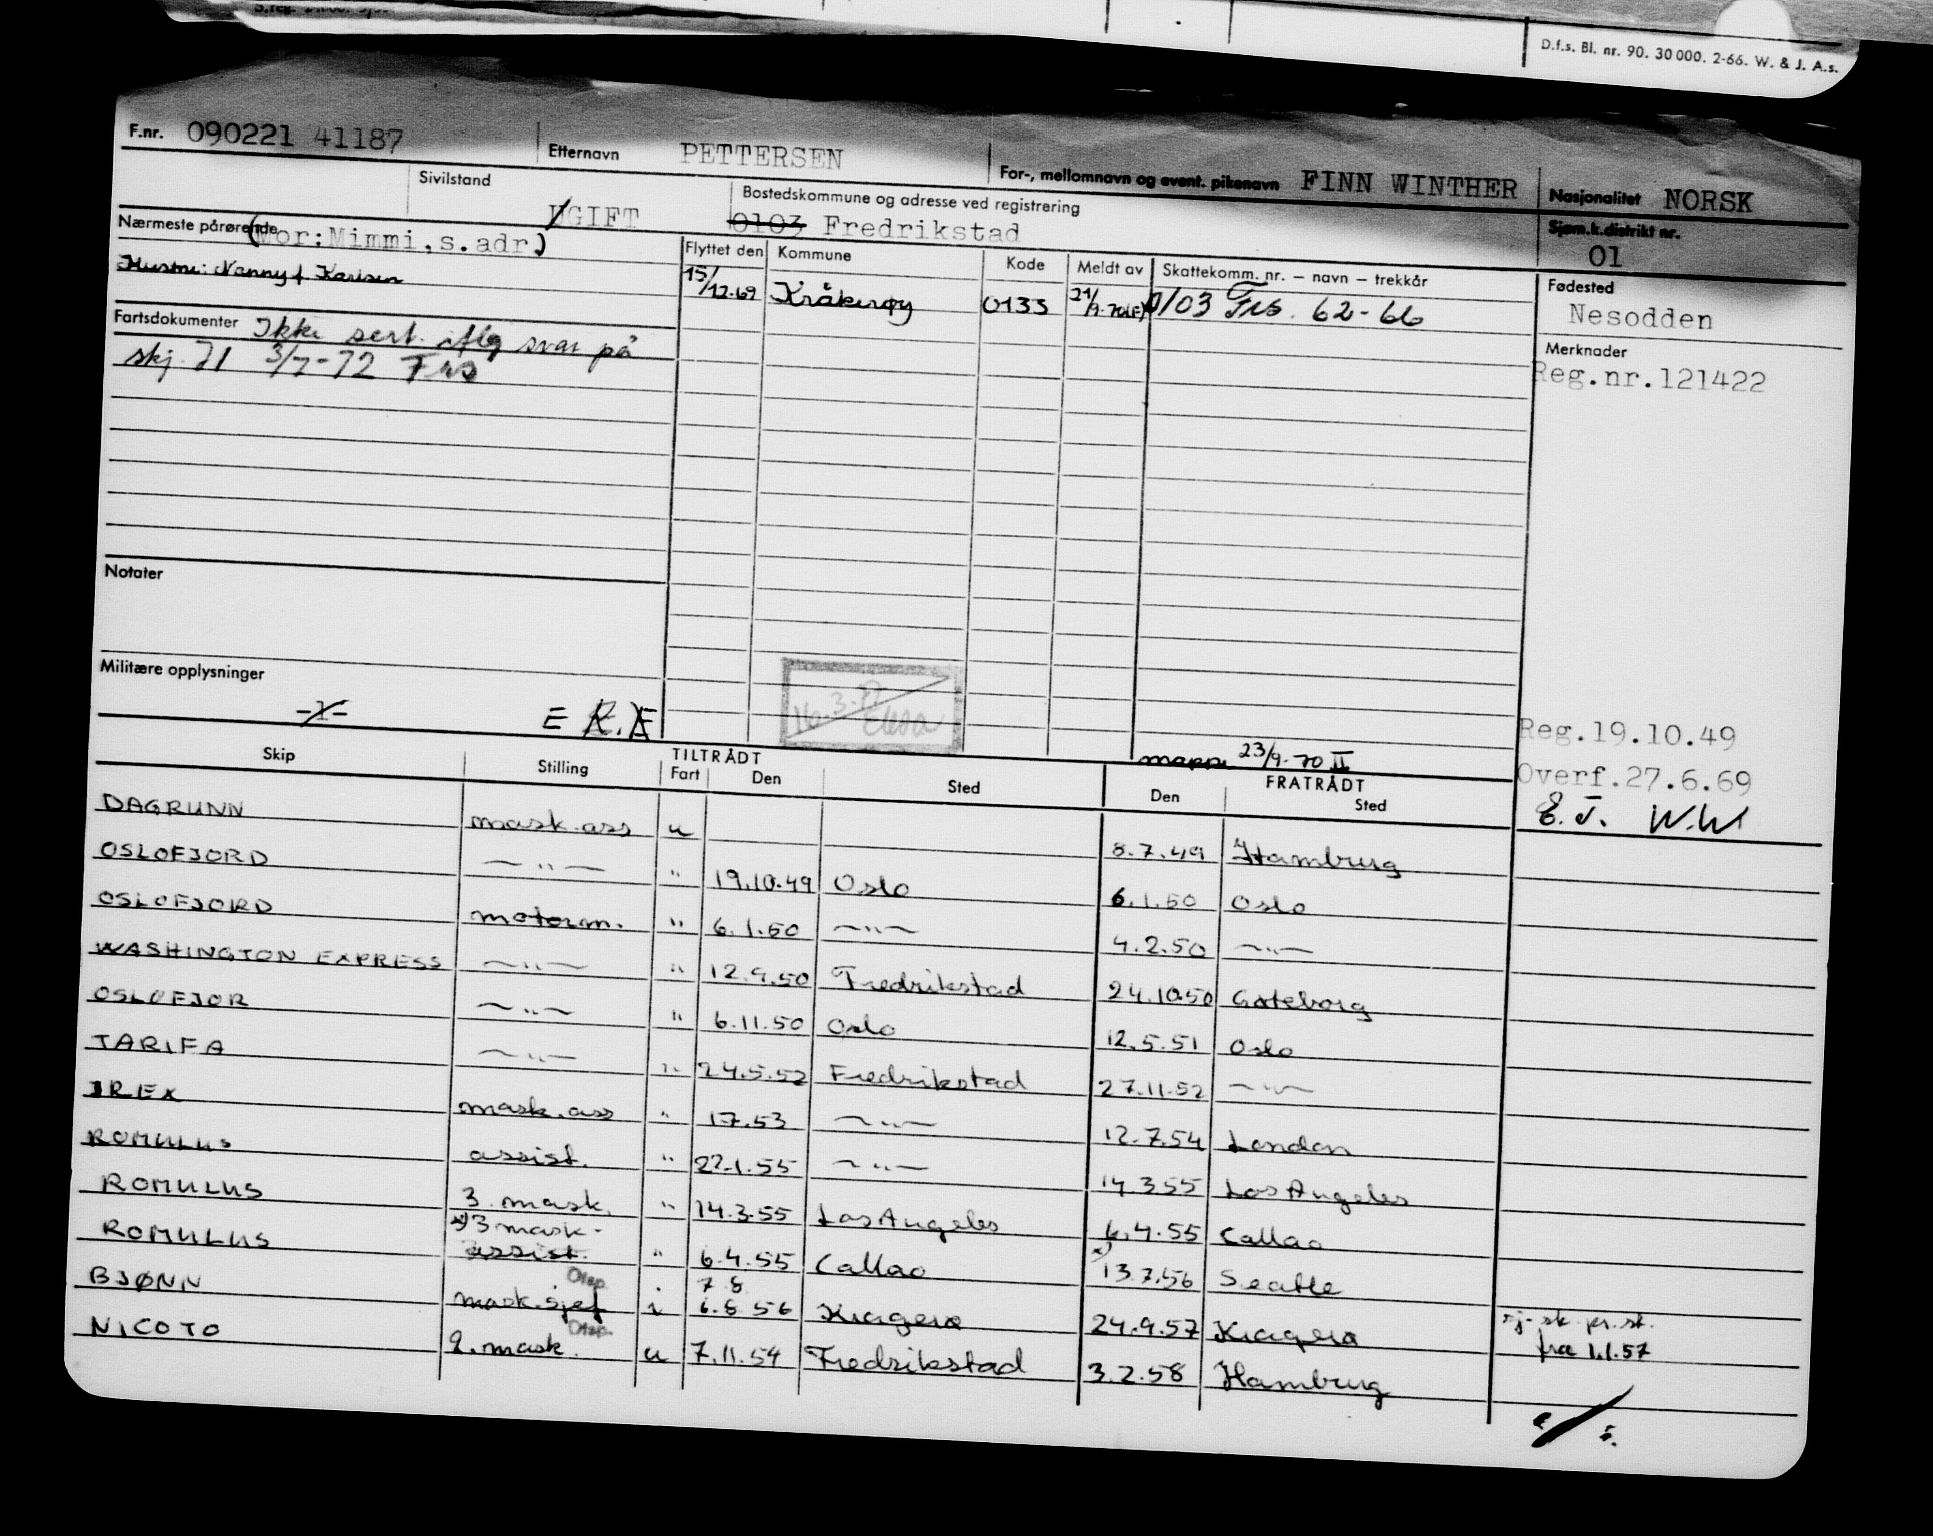 D.f.s. Bl. nr. 90. 30 000. 2-66. W. & J. A.s.
F.nr. 090221 41187 Etternavn PETTERSEN For-, mellomnavn og event. pikenavn FINN WINTHER Nasjonalitet NORSK
Sivilstand UGIFT Bostedskommune og adresse ved registrering 0103 Fredrikstad Sjøm.k.distrikt nr. 01
Nærmeste pårørende (Mor:Mimmi,s.adr.)
Hustru: Nanny f. Karlsen
Flyttet den Kommune Kode Meldt av Skattekomm. nr. – navn – trekkår Fødested
15/12-69 Kråkerøy 0133 21/9-70 0103 Frs. 62-66 Nesodden
Fartsdokumenter Ikke sert. iflg svar på
skj. 71 3/7-72 Frs
Merknader
Reg.nr.121422
Notater
Militære opplysninger
-1- E R.F
16.3.77
Reg.19.10.49
Overf.27.6.69
E.T. W.W
mappe 23/9-70 II
TILTRÅDT FRATRÅDT
Skip Stilling Fart Den Sted Den Sted
DAGRUNN mask.ass u 8.7.49 Hamburg
OSLOFJORD —"— " 19.10.49 Oslo 6.1.50 Oslo
OSLOFJORD motorm. " 6.1.50 —"— 4.2.50 —"—
WASHINGTON EXPRESS —"— " 12.9.50 Fredrikstad 24.10.50 Gøteborg
OSLOFJOR —"— " 6.11.50 Oslo 12.5.51 Oslo
TARIFA —"— " 24.5.52 Fredrikstad 27.11.52 —"—
IREX mask.ass " 1.7.53 —"— 12.7.54 London
ROMULUS assist. " 22.1.55 —"— 14.3.55 Los Angeles
ROMULUS 3. mask. " 14.3.55 Los Angeles 6.4.55 Callao
ROMULUS x) 3 mask. assist. " 6.4.55 Callao x) 13.7.56 Seatle
BJØNN Disp. mask.sjef i 7.8 6.8.56 Kragerø 24.9.57 Kragerø
sj. sk. pr. sk.
fra 1.1.57
NICOTO Disp. 2. mask. u 7.11.57 Fredrikstad 3.2.58 Hamburg